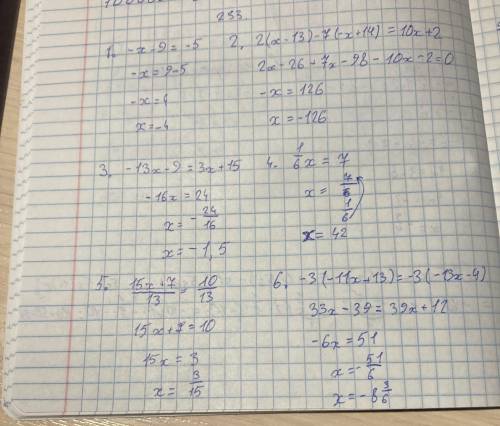 233.
1. -x-9=-5
-x=9-5
-x=4
x=-4
2. 2(x-13)-7(-x+14)=10x+2
2x-26+7x-98-10x-2=0
-x=126
x=-126
3. -13x-9=3x+15
-16x=24
x=-24/16
x=-1,5
4. 1/6x=7
x=7/1/6
x=42
5. 15x+7/13=10/13
15x+7=10
15x=3
x=3/15
6. -3(-11x+13)=-3(-13x-4)
33x-39=39x+12
-6x=51
x=-51/6
x=-8 3/6